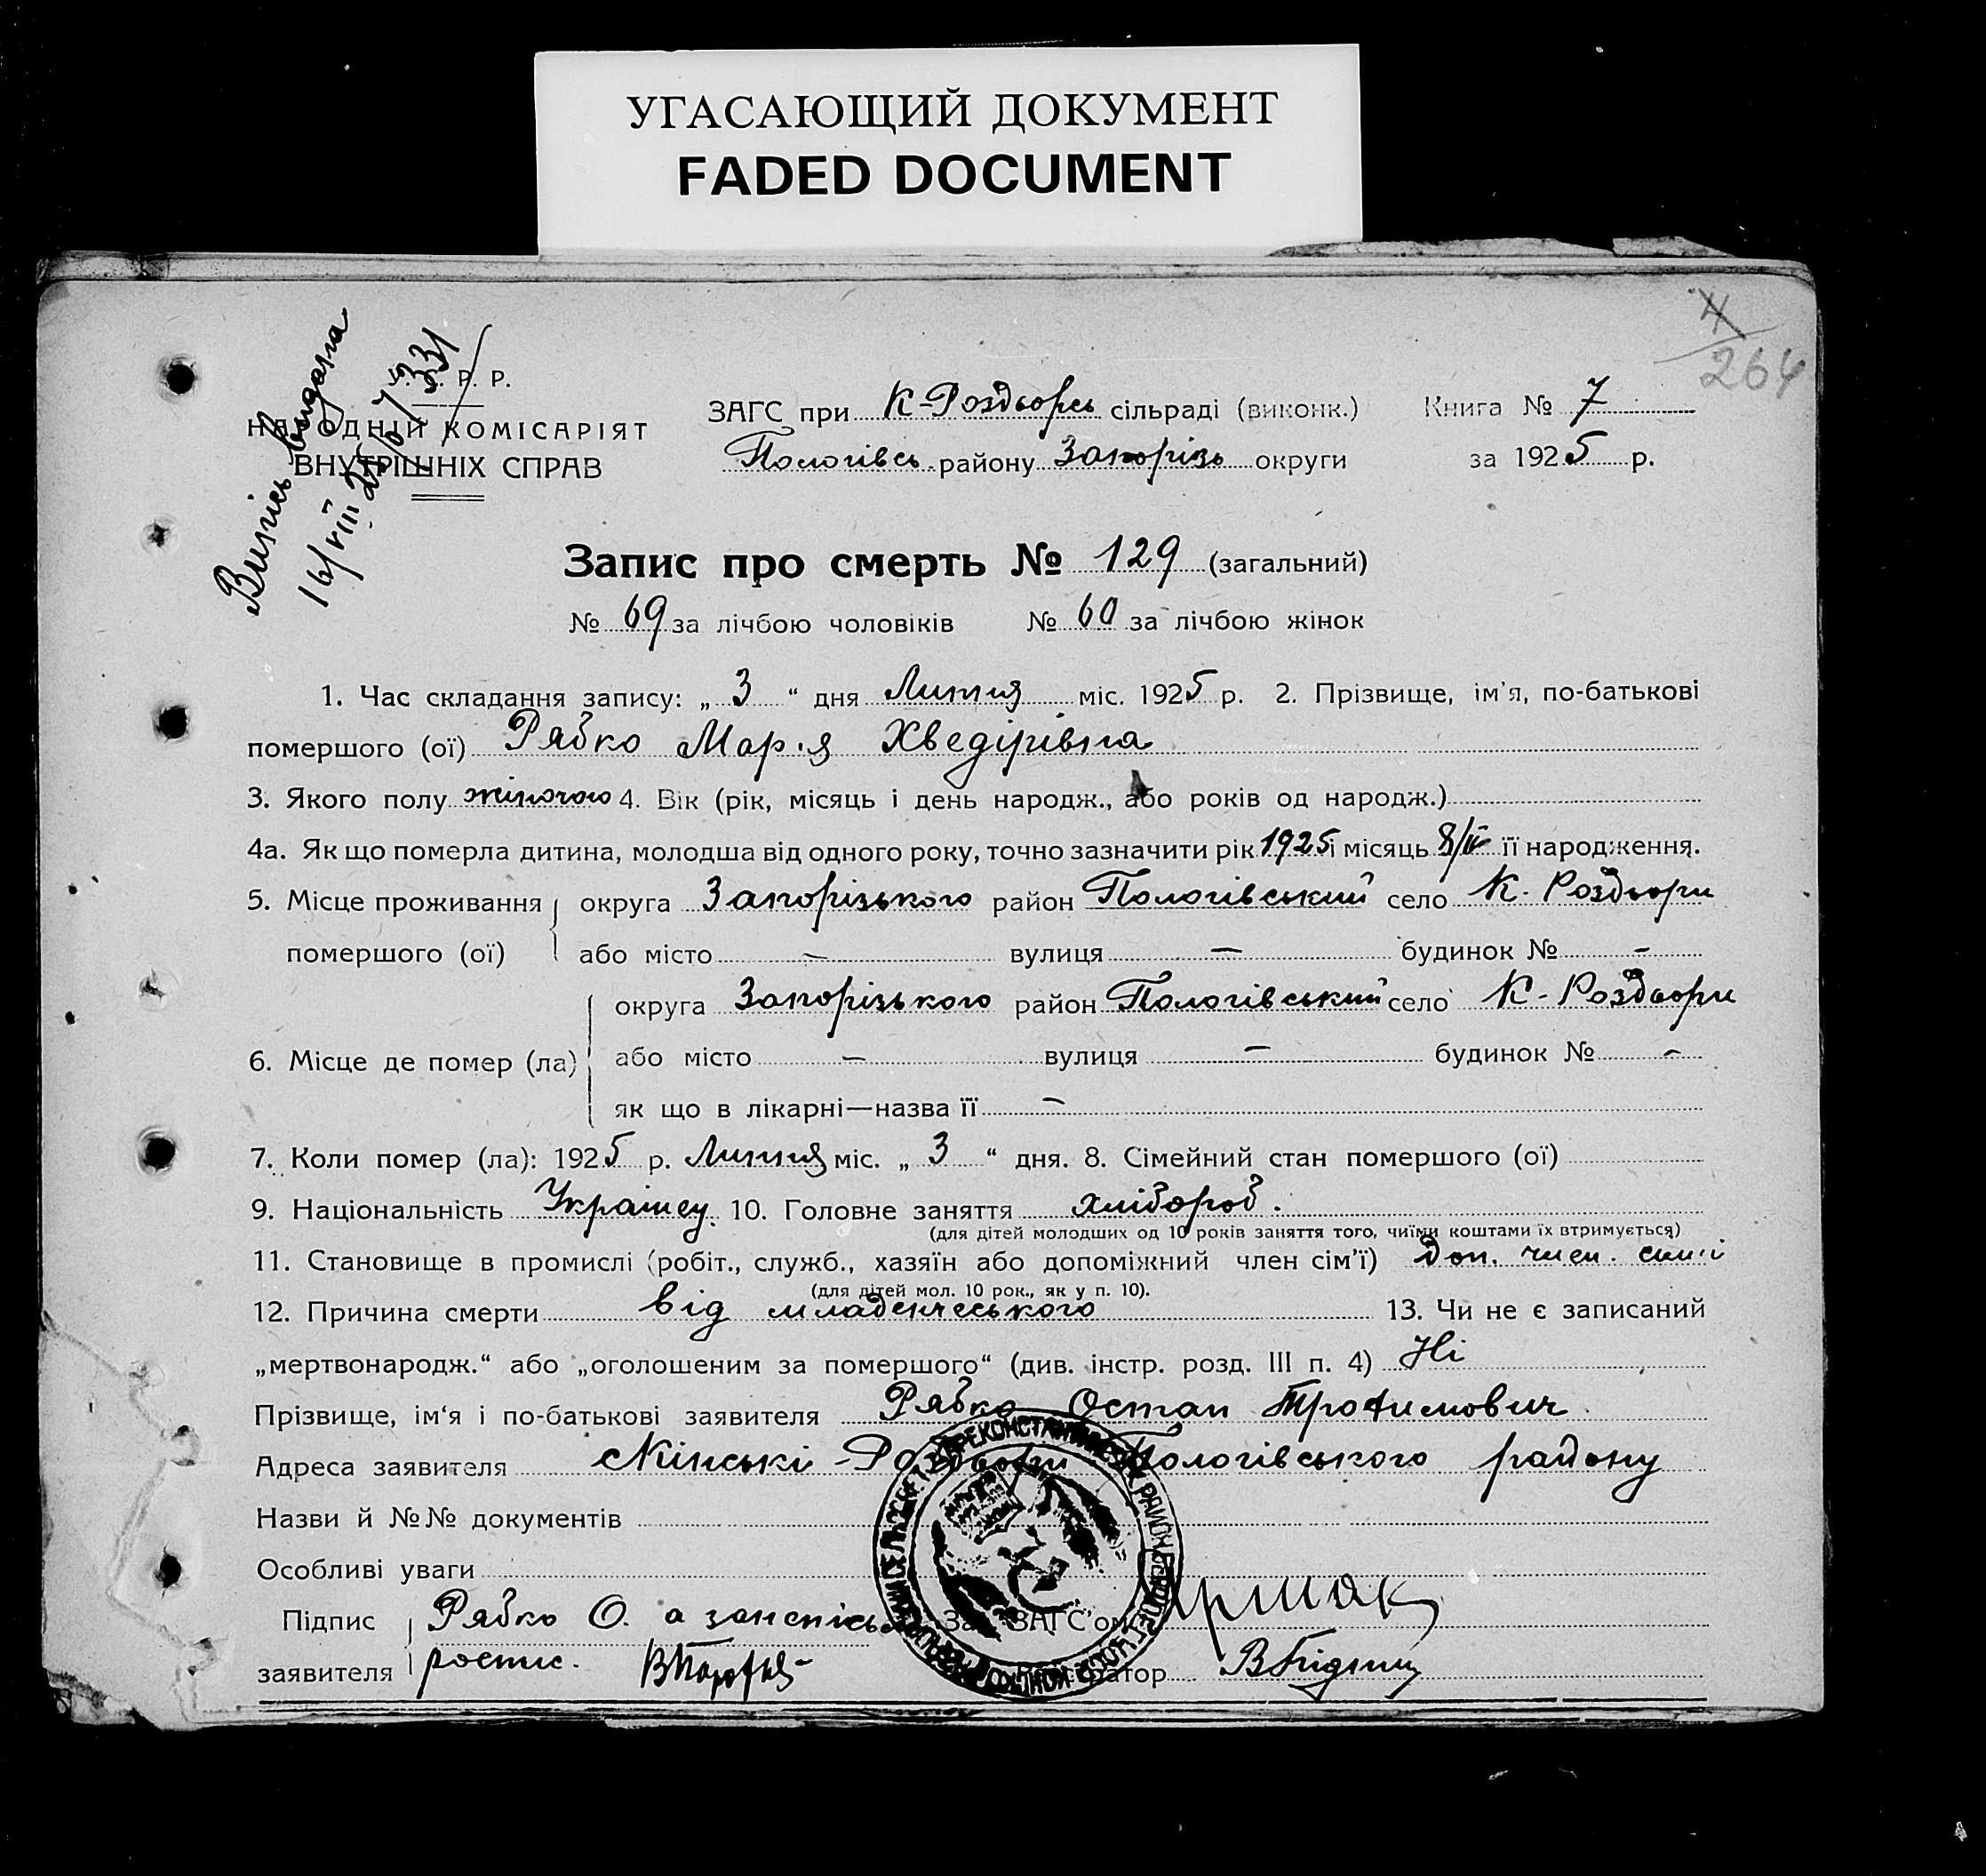 УГАСАЮЩИЙ ДОКУМЕНТ
FADED DOCUMENT
264
Випись видана
16/VIII 25
У. С. Р. Р.
НАРОДНІЙ КОМІСАРІЯТ
ВНУТРІШНІХ СПРАВ
ЗАГС при К-Роздорсь сільраді (виконк.) Книга № 7
Пологівсь. району Запорізь округи за 1925 р.
Запис про смерть № 129 (загальний)
№ 69 за лічбою чоловіків № 60 за лічбою жінок
1. Час складання запису: „ 3 “ дня Липня міс. 1925 р. 2. Прізвище, ім'я, по-батькові
помершого (ої) Рябко Марія Хведірівна
3. Якого полу жіночого 4. Вік (рік, місяць і день народж., або років од народж.)
4а. Як що померла дитина, молодша від одного року, точно зазначити рік 1925 і місяць 8/IV її народження.
5. Місце проживання округа Запорізького район Пологівський село К. Роздори
помершого (ої) або місто — вулиця — будинок № -
округа Запорізького район Пологівський село К-Роздори
6. Місце де помер (ла) або місто — вулиця — будинок № -
як що в лікарні—назва її —
7. Коли помер (ла): 1925 р. Липня міс. „ 3 “ дня. 8. Сімейний стан помершого (ої)
9. Національність Українсу. 10. Головне заняття хлібороб.
(для дітей молодших од 10 років заняття того, чиїми коштами їх втримується)
11. Становище в промислі (робіт., служб., хазяїн або допоміжний член сім'ї) Доп. член. сім'ї
(для дітей мол. 10 рок., як у п. 10).
12. Причина смерти від младенческого 13. Чи не є записаний
„мертвонародж.“ або „оголошеним за помершого“ (див. інстр. розд. III п. 4) Ні
Прізвище, ім'я і по-батькові заявителя Рябко Остап Трофимович
Адреса заявителя Кінські-Роздори Пологівського району
Назви й №№ документів
Особливі уваги
Підпис Рябко О. а за Зав. ЗАГС'ом
заявителя роспис.